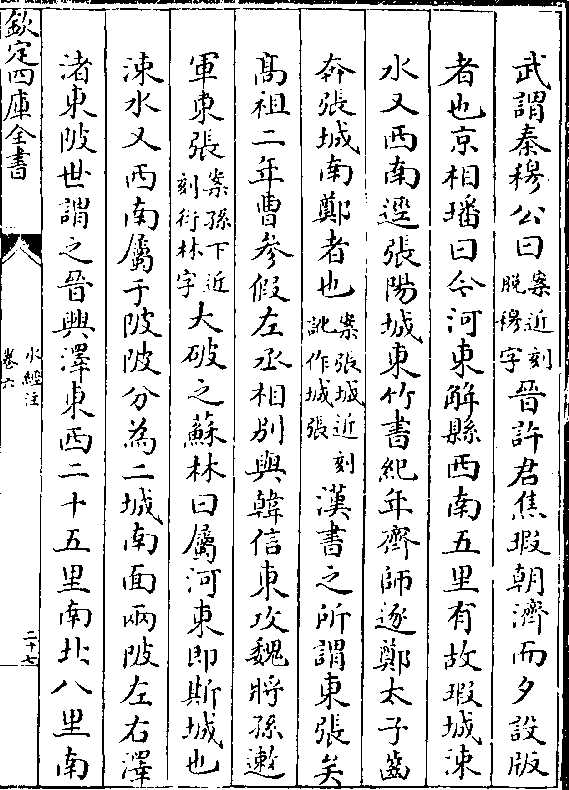 武謂秦穆公曰案近刻脫穆字晉許君焦瑕朝濟而夕設版
者也京相璠曰今河東解縣西南五里有故瑕城涑
水又西南逕張陽城東竹書紀年齊師逐鄭太子齒
奔張城南鄭者也案張城近刻訛作城張漢書之所謂東張矣
高祖二年曹參假左丞相别與韓信東攻魏將孫遬
軍東張案孫下近刻衍林字大破之蘇林曰屬河東即斯城也
涑水又西南屬于陂陂分為二城南面兩陂左右澤
渚東陂世謂之晉興澤東西二十五里南北八里南
欽定四庫全書
水經注
卷六
二十七